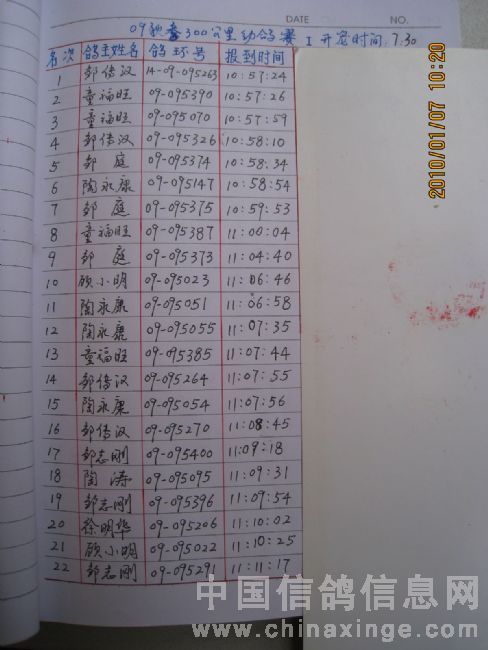 DATE NO.
300公里幼鸽赛 I 开笼时间:7:30
名次 鸽主姓名 鸽环号 报到时间
1 邹传汉 14-09-095263 10:57:24
2 童福旺 09-095390 10:57:26
3 童福旺 09-095070 10:57:59
4 邹传汉 09-095326 10:58:10
5 邹庭 09-095374 10:58:34
6 陶永康 09-095147 10:58:54
7 邹庭 09-095375 10:59:53
8 童福旺 09-095387 11:00:04
9 邹庭 09-095373 11:04:40
10 顾小明 09-095023 11:06:46
11 陶永康 09-095051 11:06:58
12 陶永康 09-095055 11:07:35
13 童福旺 09-095385 11:07:44
14 邹传汉 09-095264 11:07:55
15 陶永康 09-095054 11:07:56
16 邹传汉 09-095270 11:08:45
17 邹志刚 09-095400 11:09:18
18 陶涛 09-095095 11:09:31
19 邹志刚 09-095396 11:09:54
20 徐明华 09-095206 11:10:02
21 顾小明 09-095022 11:10:25
22 邹志刚 09-095291 11:11:17
2010/01/07 10:20
中国信鸽信息网
www.chinaxinge.com